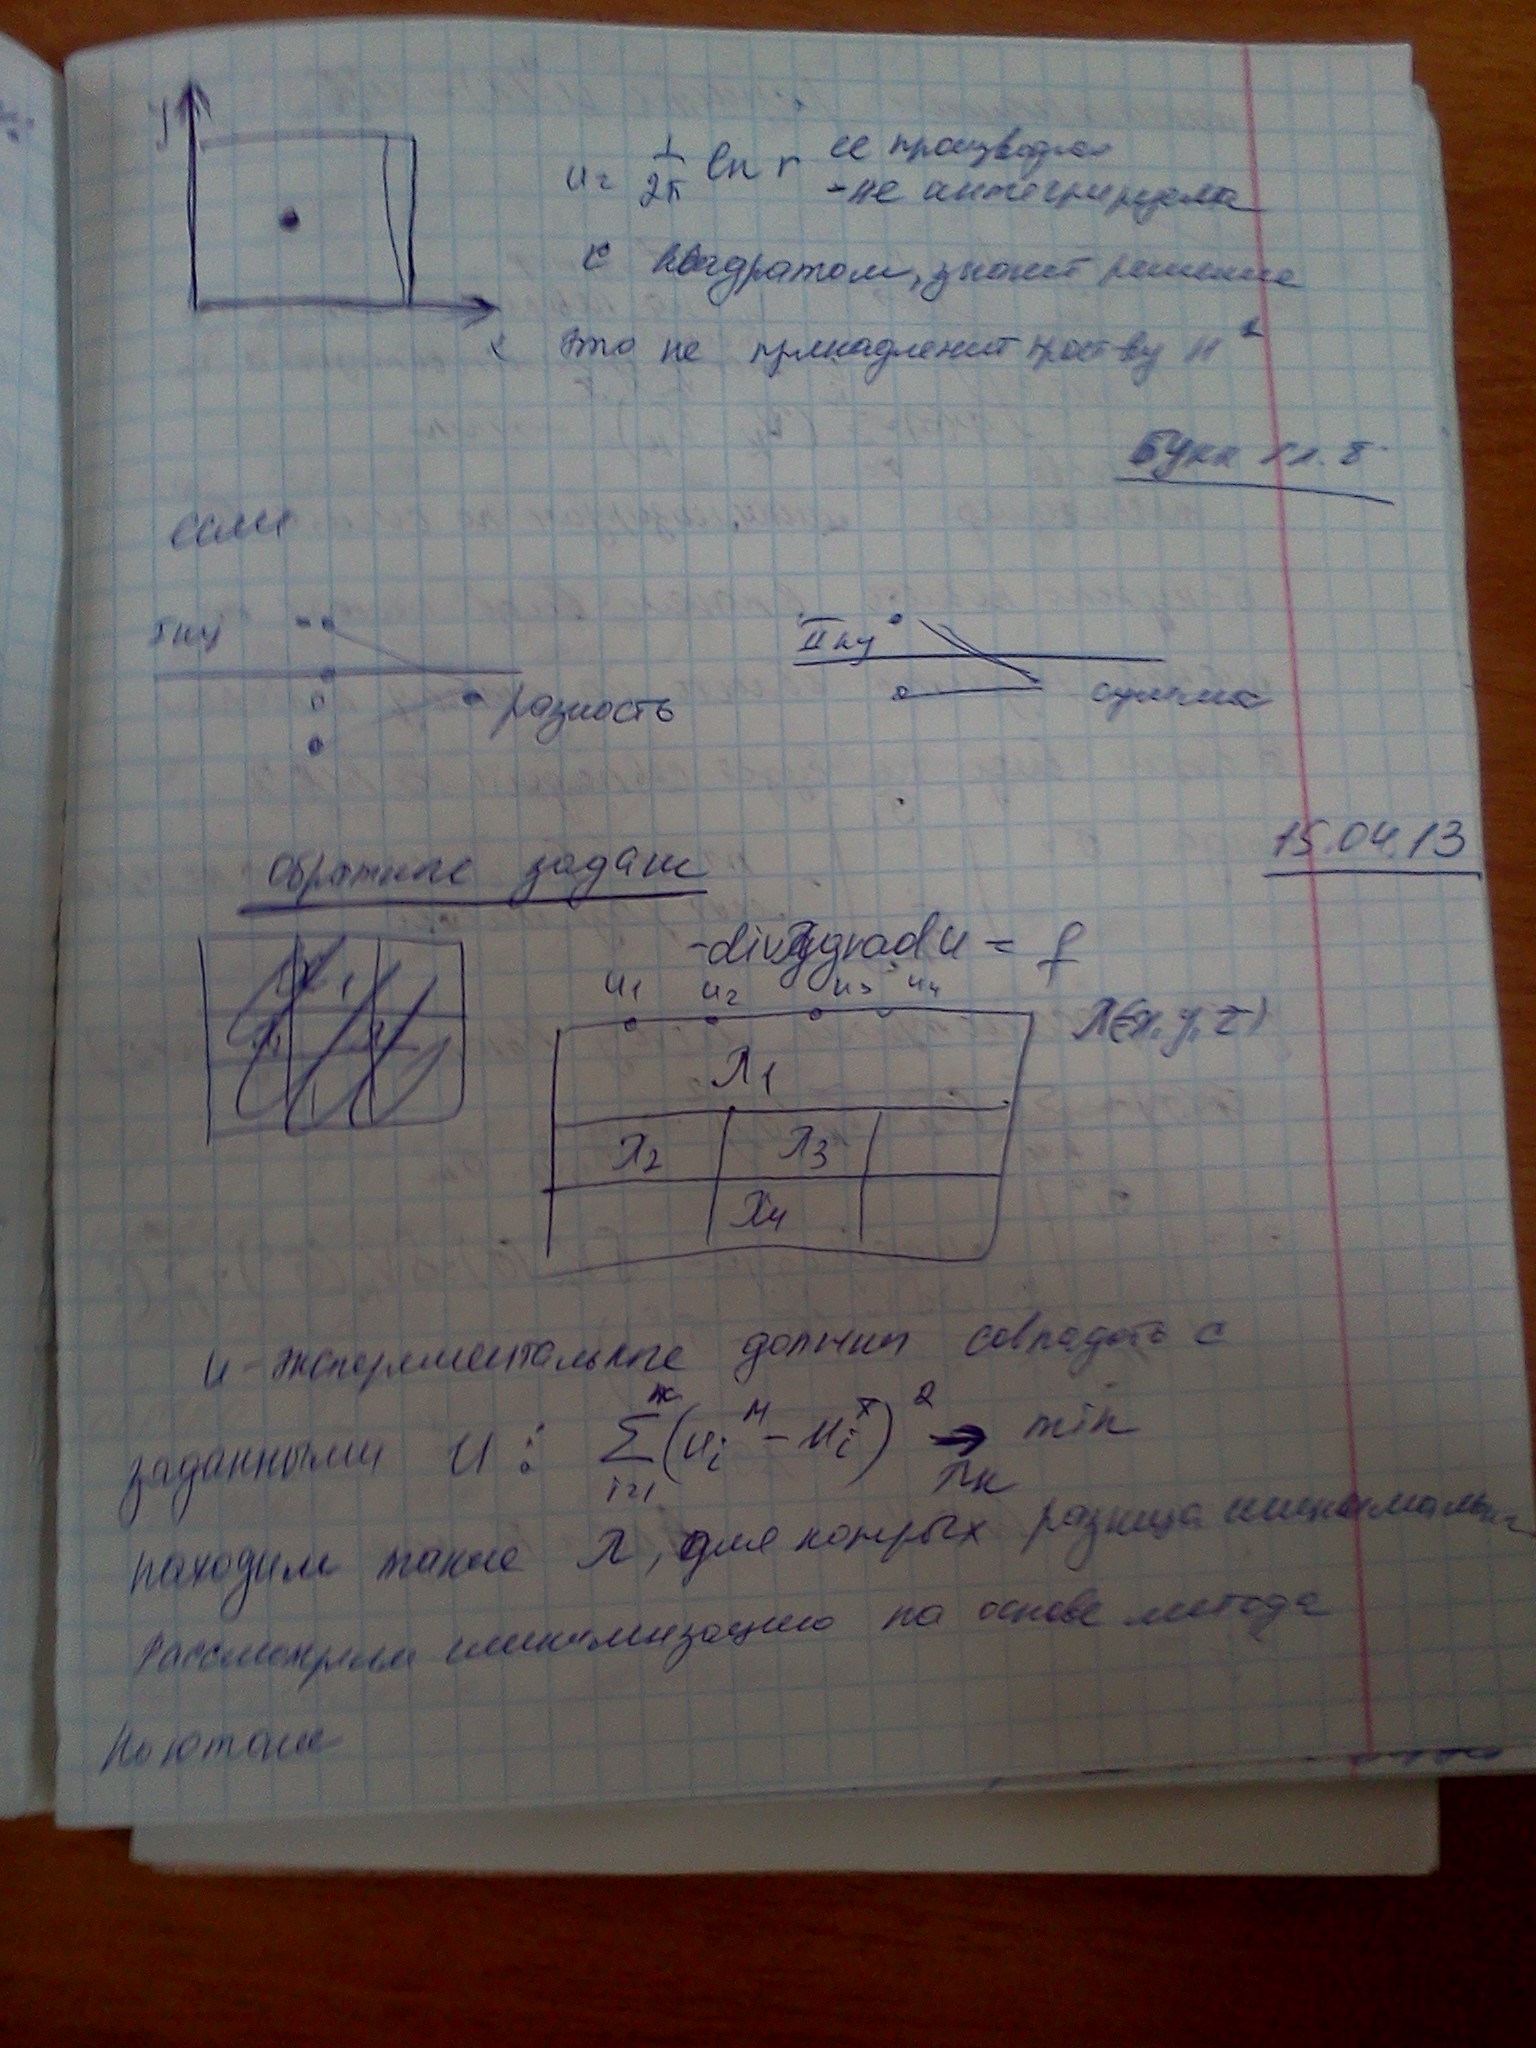 y
u = 1/2π ln r ее производная
- не интегрируема
с квадратом, значит решение
x это не принадлежит проству H¹
Букк гл. 8
если
I ку
разность
II ку
сумма
15.04.13
Обратные задачи
-div λ grad u = f
u1 u2 u3 u4
λ(x, y, z)
λ1
λ2 λ3
λ4
u - экспериментальные должны совпадать с
заданными u : Σ i=1 (u_i^м - u_i^т)² → min
λк
находим такие λ, для котрых разница минимальна
Рассмотрим минимизацию на основе метода
Ньютона